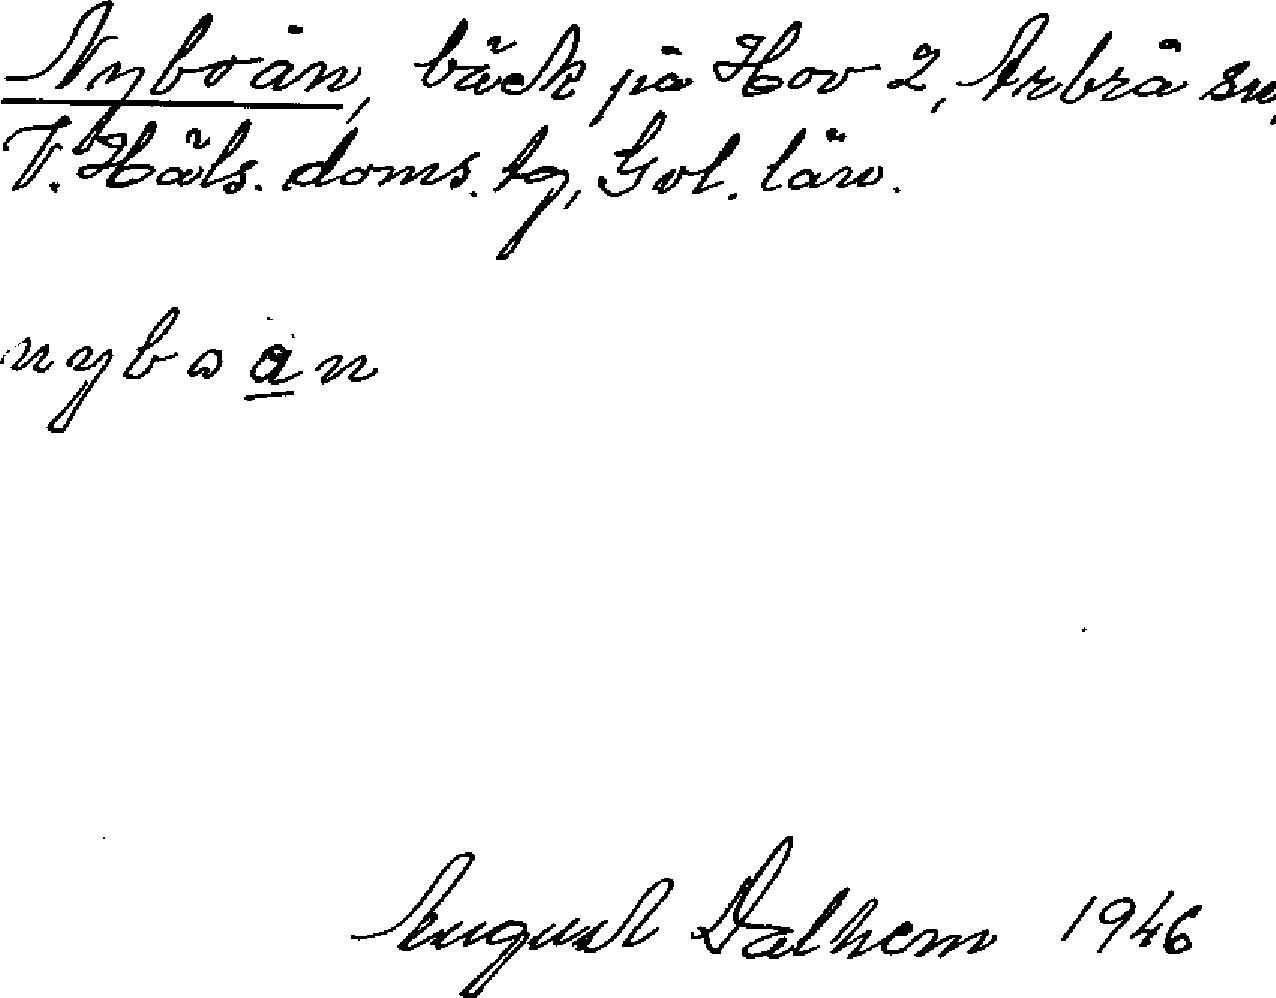 Nyboån, bäck på Hov 2, Arbrå sn,
V. Häls. doms. tg, Gvl. län.
nyboån
August Dalhem 1946